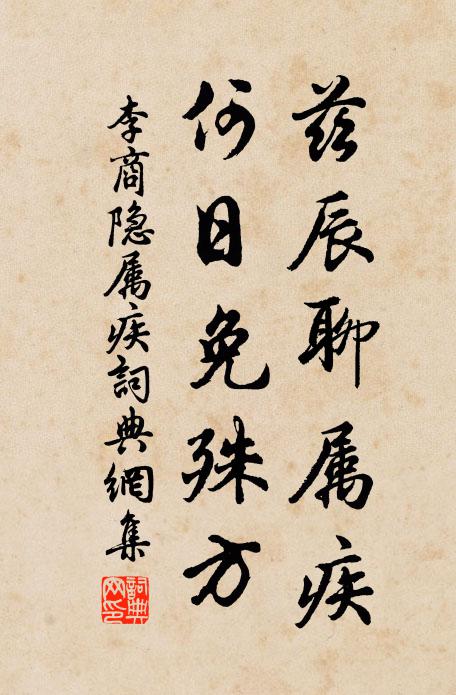 兹辰聊属疾
何日免殊方
李商隐属疾詞典網集
詞典網印